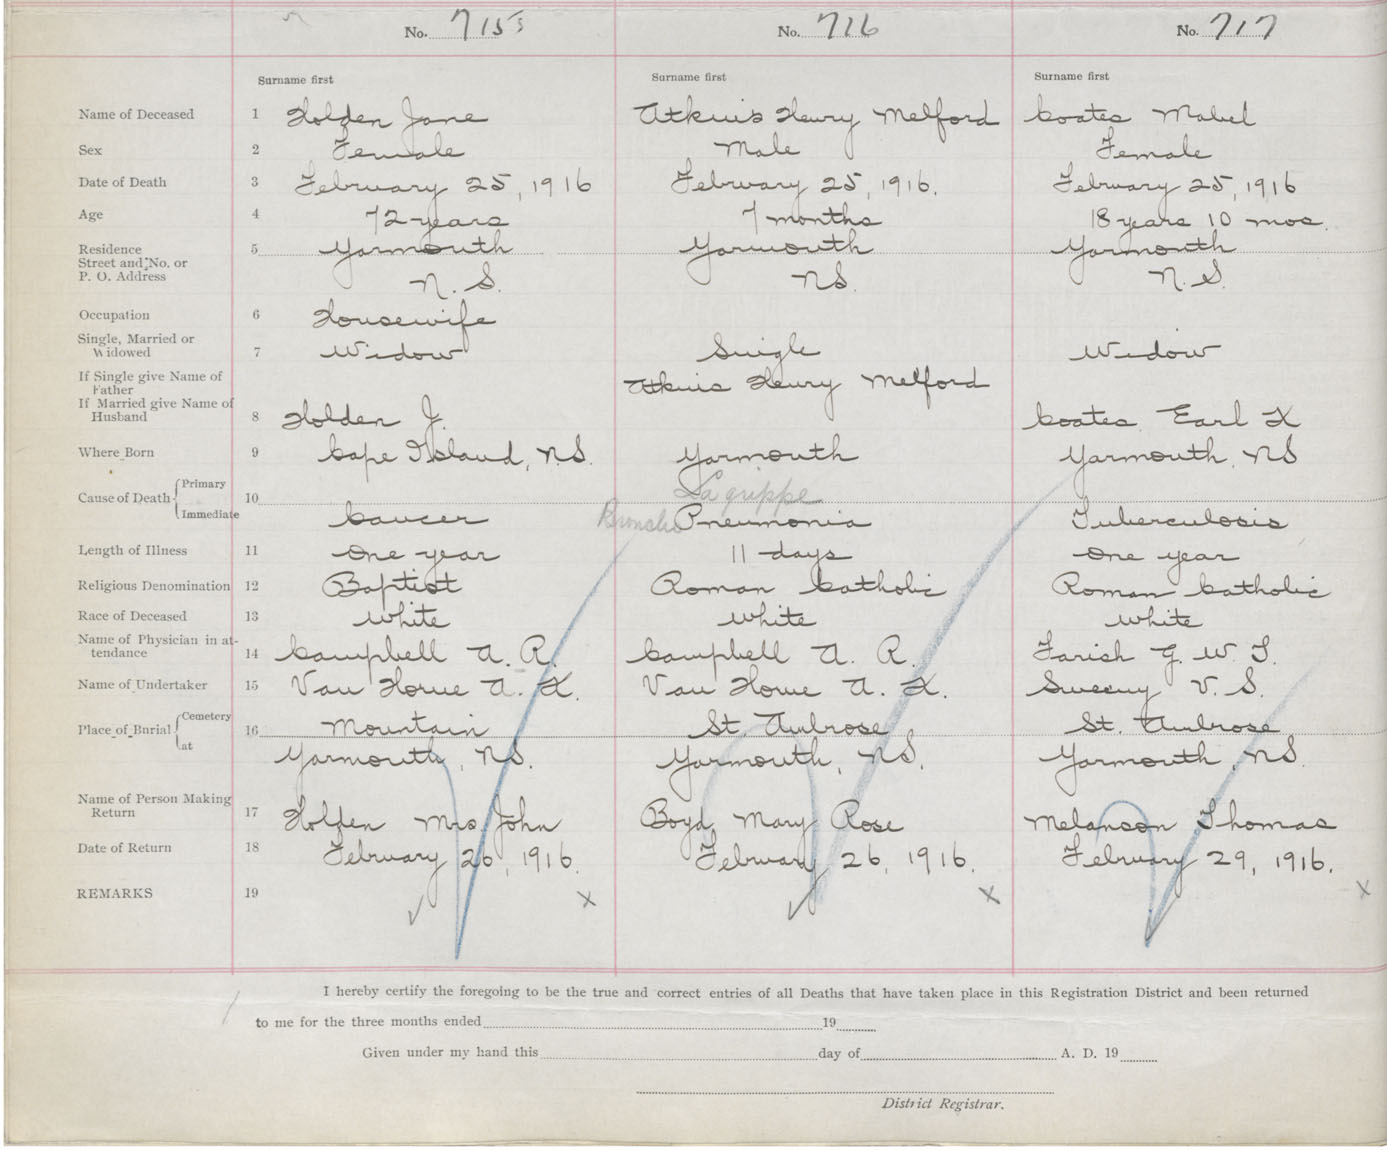 No. 715 No. 716 No. 717
Surname first Surname first Surname first
Name of Deceased 1 Holden Jane Atkins Henry Melford Coates Mabel
Sex 2 Female Male Female
Date of Death 3 February 25, 1916 February 25, 1916. February 25, 1916
Age 4 72 years 7 months 18 years 10 mos.
Residence 5 Yarmouth Yarmouth Yarmouth
Street and No. or
P. O. Address N. S. NS. N. S.
Occupation 6 Housewife
Single, Married or
Widowed 7 Widow Single Widow
If Single give Name of
Father Atkins Henry Melford
If Married give Name of
Husband 8 Holden J. Coates Earl
Where Born 9 Cape Island, N.S. Yarmouth Yarmouth, NS
Primary La grippe
Cause of Death 10
Immediate Cancer Broncho Pneumonia Tuberculosis
Length of Illness 11 One year 11 days One year
Religious Denomination 12 Baptist Roman Catholic Roman Catholic
Race of Deceased 13 White White White
Name of Physician in at-
tendance 14 Campbell A. R. Campbell A. R. Farish G. W. T.
Name of Undertaker 15 Van Horne A. K. Van Horne A. K. Sweeny V. S.
Cemetery
Place of Burial 16 Mountain St. Ambrose St. Ambrose
at Yarmouth, NS. Yarmouth, NS. Yarmouth, NS.
Name of Person Making
Return 17 Holden Mrs. John Boyd, Mary Rose Melanson Thomas
Date of Return 18 February 26, 1916. February 26, 1916. February 29, 1916.
REMARKS 19 x x x
I hereby certify the foregoing to be the true and correct entries of all Deaths that have taken place in this Registration District and been returned
to me for the three months ended 19
Given under my hand this day of A. D. 19
District Registrar.